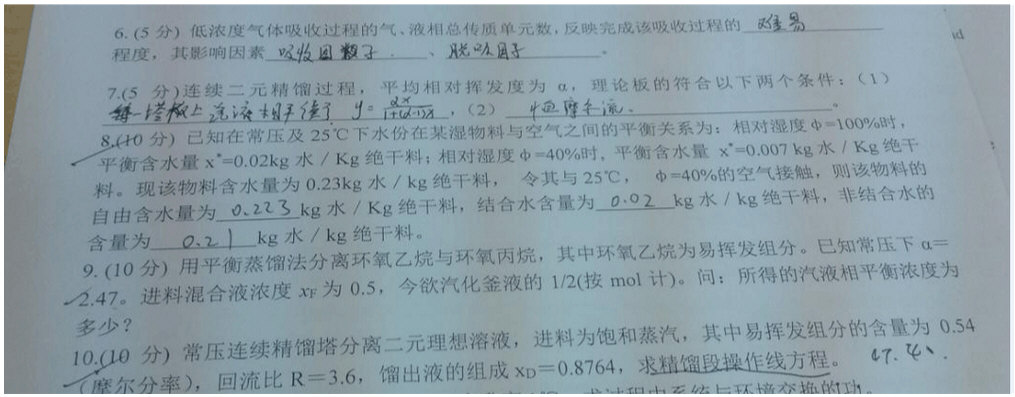 6. (5 分) 低浓度气体吸收过程的气、液相总传质单元数, 反映完成该吸收过程的 难易
程度, 其影响因素 吸收因数子 、 脱吸因子 。
7.(5 分)连续二元精馏过程, 平均相对挥发度为 α, 理论板的符合以下两个条件: (1)
塔板上 y= , (2) 恒摩尔流 。
8.(10 分) 已知在常压及 25℃下水份在某湿物料与空气之间的平衡关系为: 相对湿度 φ=100%时,
平衡含水量 x*=0.02kg 水 / Kg 绝干料; 相对湿度 φ=40%时, 平衡含水量 x*=0.007 kg 水 / Kg 绝干
料。现该物料含水量为 0.23kg 水 / kg 绝干料, 令其与 25℃, φ=40%的空气接触, 则该物料的
自由含水量为 0.223 kg 水 / Kg 绝干料, 结合水含量为 0.02 kg 水 / kg 绝干料, 非结合水的
含量为 0.21 kg 水 / kg 绝干料。
9. (10 分) 用平衡蒸馏法分离环氧乙烷与环氧丙烷, 其中环氧乙烷为易挥发组分。已知常压下 α=
2.47。进料混合液浓度 xF 为 0.5, 今欲汽化釜液的 1/2(按 mol 计)。问: 所得的汽液相平衡浓度为
多少?
10.(10 分) 常压连续精馏塔分离二元理想溶液, 进料为饱和蒸汽, 其中易挥发组分的含量为 0.54
(摩尔分率), 回流比 R=3.6, 馏出液的组成 xD=0.8764, 求精馏段操作线方程。
求过程中系统与环境交换的功。